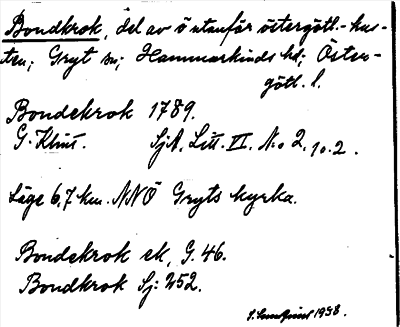 Bondkrok, del av ö utanför östergötl.-kus-
ten; Gryt sn; Hammarkinds hd; Öster-
götl. l.
Bondekrok 1789.
G. Klint. SjA. Litt. II. N:o 2. 10.2.
Läge 6,7 km. NNÖ Gryts kyrka.
Bondekrok ek, G. 46.
Bondkrok Sj: 252.
1938.